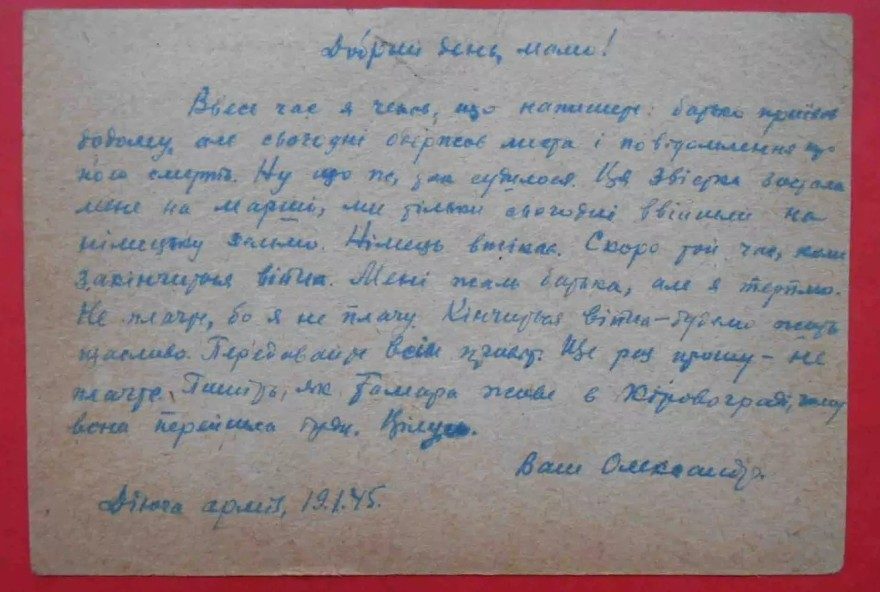 Добрий день, мамо!
Ввесь час я чекав, що напишете: батько приїхав
додому, але сьогодні одержав листа і повідомлення про
його смерть. Ну що ж, так судилося. Ця звістка застала
мене на марші, ми тільки сьогодні ввійшли на
німецьку землю. Німець втікає. Скоро той час, коли
закінчиться війна. Мені жаль батька, але я терплю.
Не плачте, бо я не плачу. Кінчиться війна – будемо жить
щасливо. Передавайте всім привіт. Ще раз прошу – не
плачте. Пишіть, як Тамара живе в Кіровограді, чому
вона перейшла туди. Цілую.
Ваш Олександр.
Діюча армія, 19.1.45.